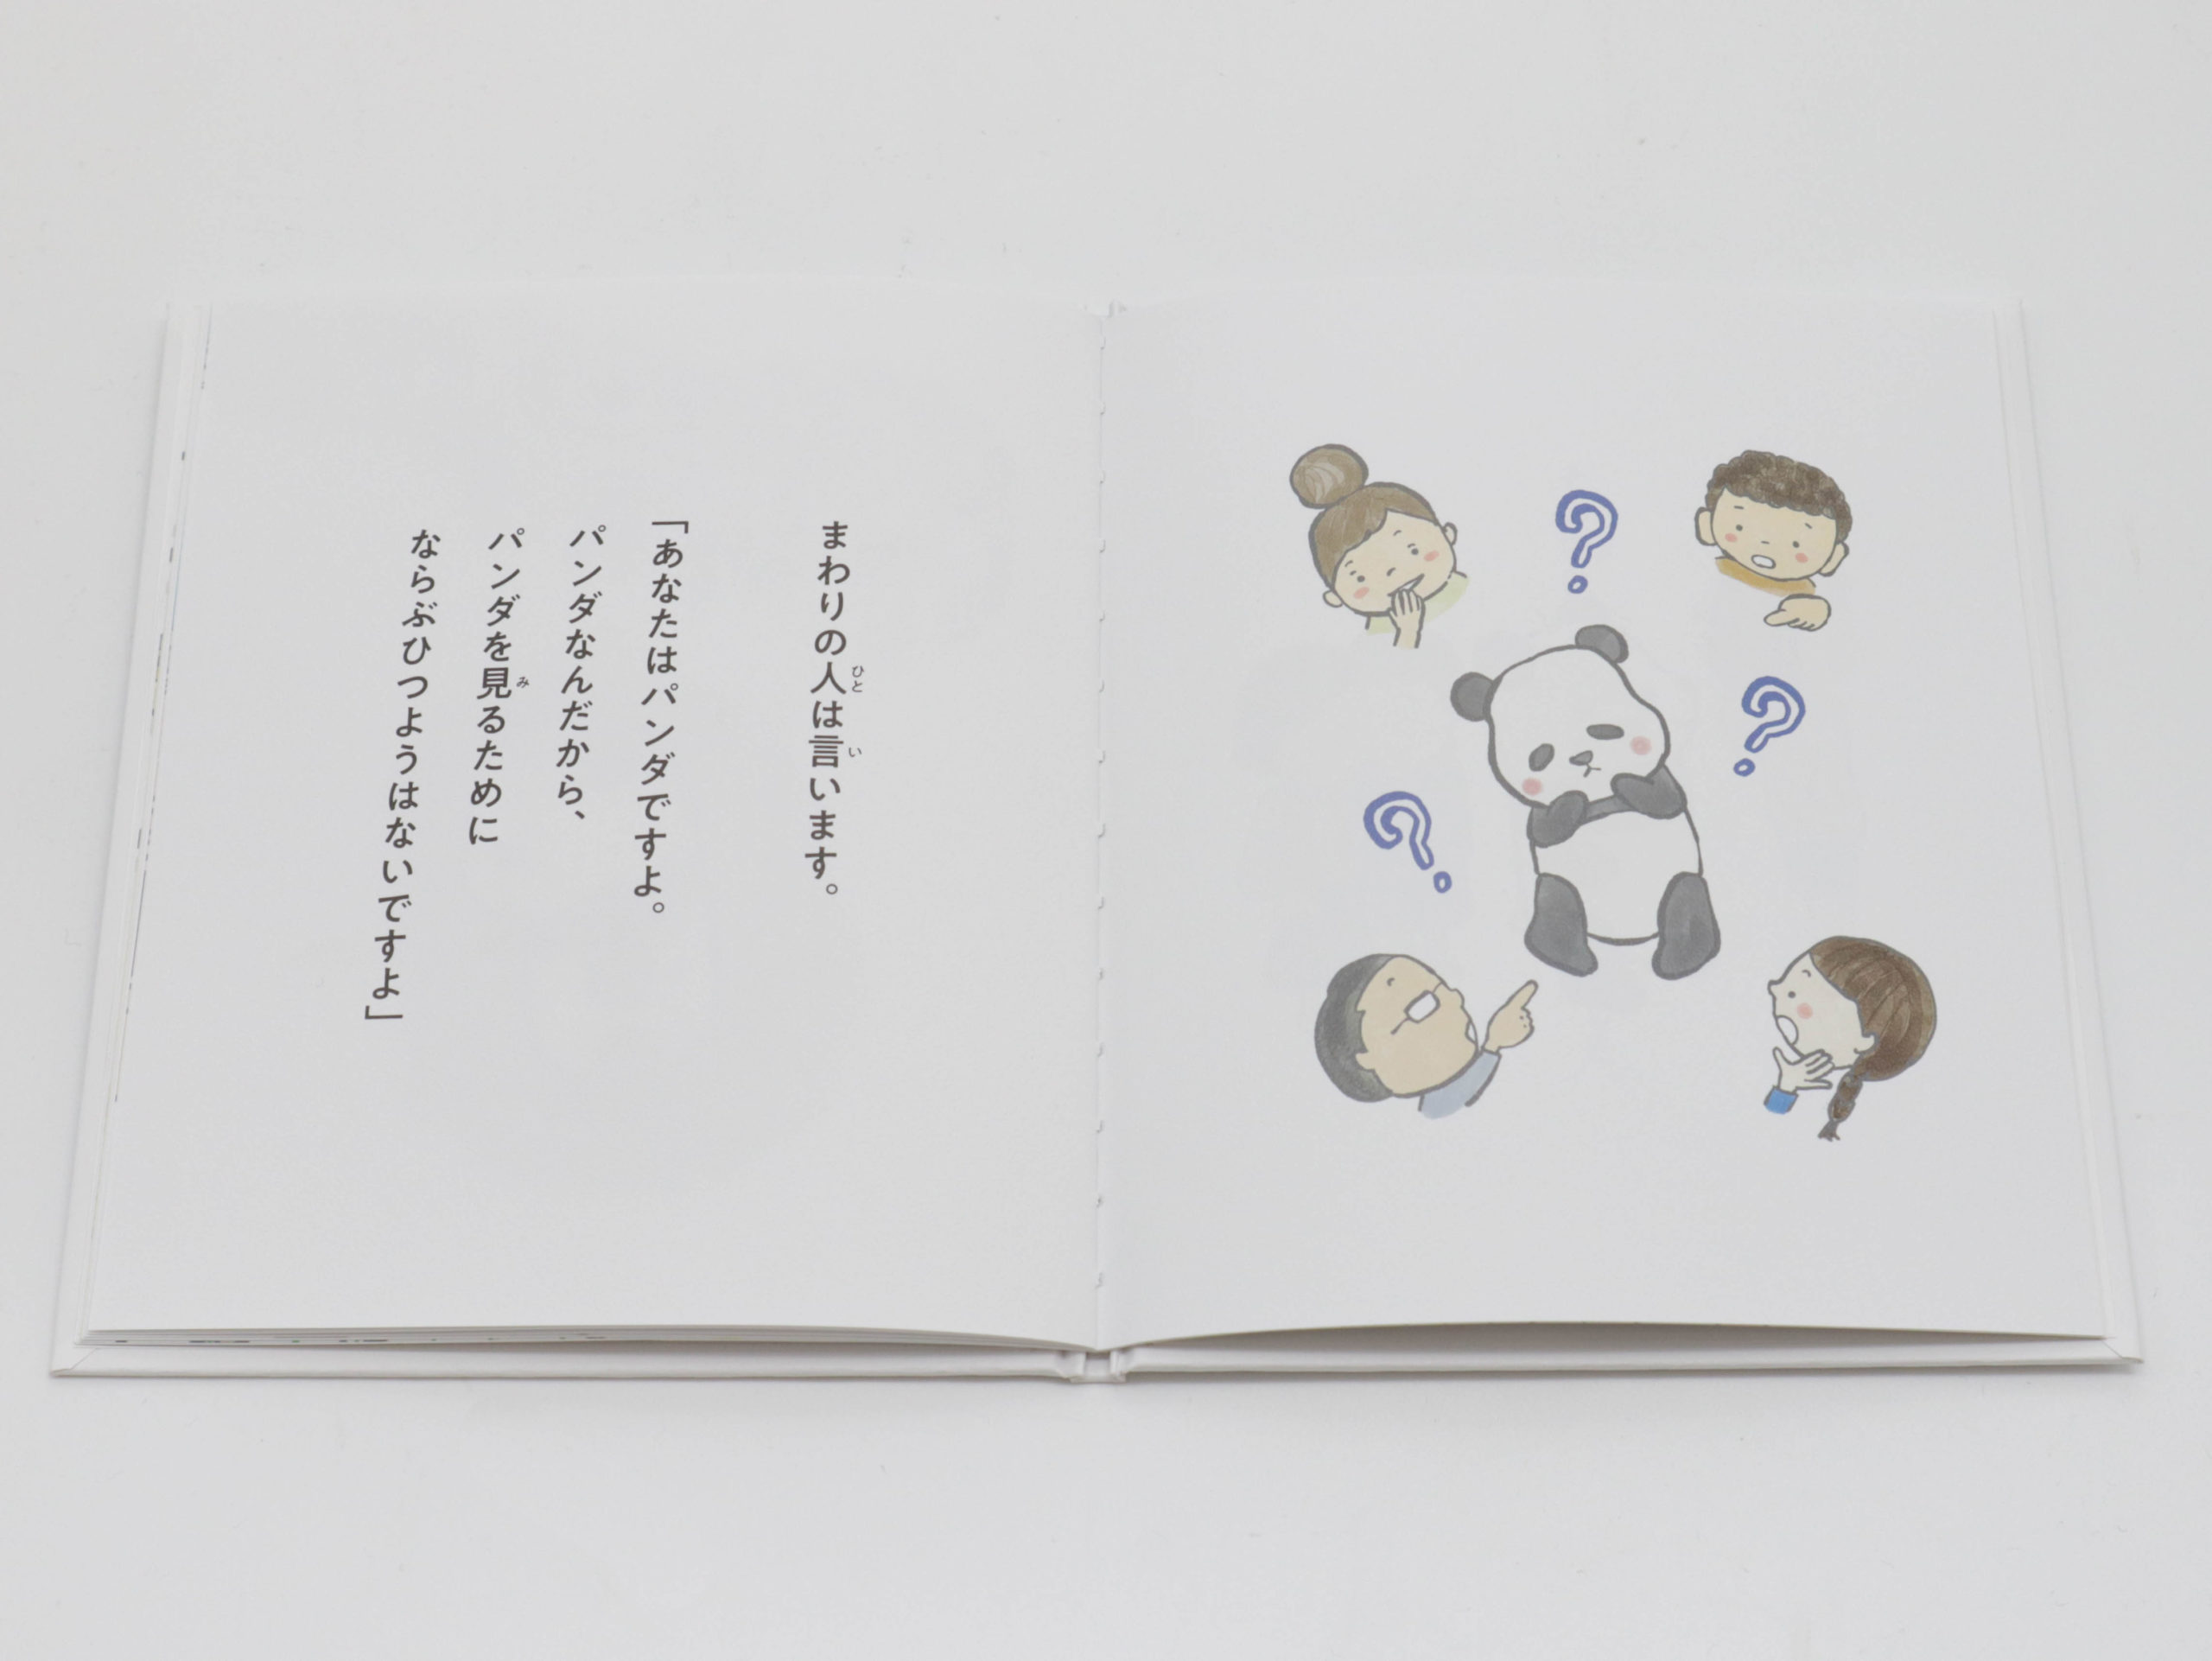 まわりの人は言います。
「あなたはパンダですよ。
パンダなんだから、
パンダを見るために
ならぶひつようはないですよ」